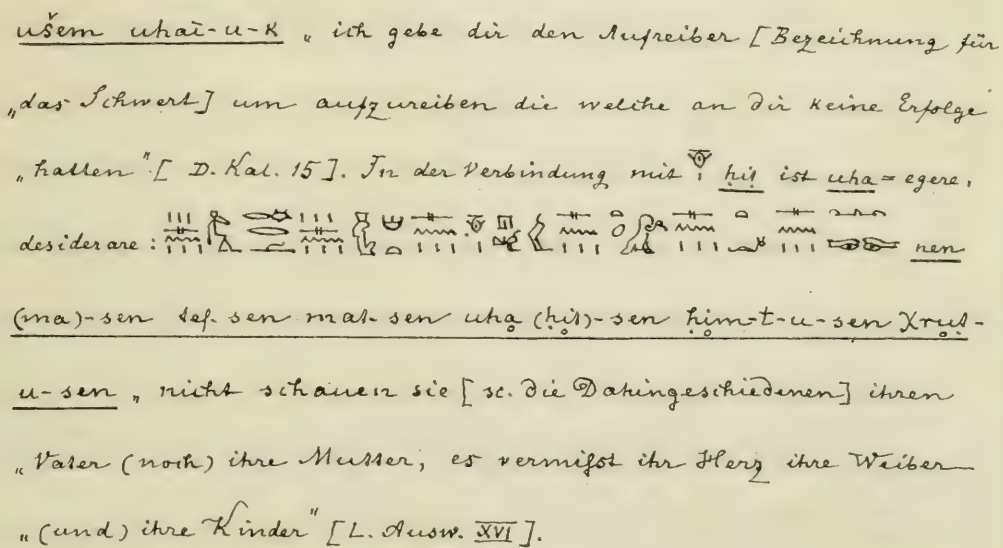 ušem uhaī-u-k „ich gebe dir den Aufreiber [Bezeichnung für
„das Schwert] um aufzureiben die welche an dir keine Erfolge
„hatten" [D. Kal. 15]. In der Verbindung mit ḥȧt ist uha = egere,
desiderare: nen
(ma)-sen tef-sen mat-sen uhạ (ḥȧt)-sen ḥim-t-u-sen χruṭ-
u-sen „nicht schauen sie [sc. die Dahingeschiedenen] ihren
„Vater (noch) ihre Mutter, es vermißt ihr Herz ihre Weiber
„(und) ihre Kinder" [L. Ausw. XVI].